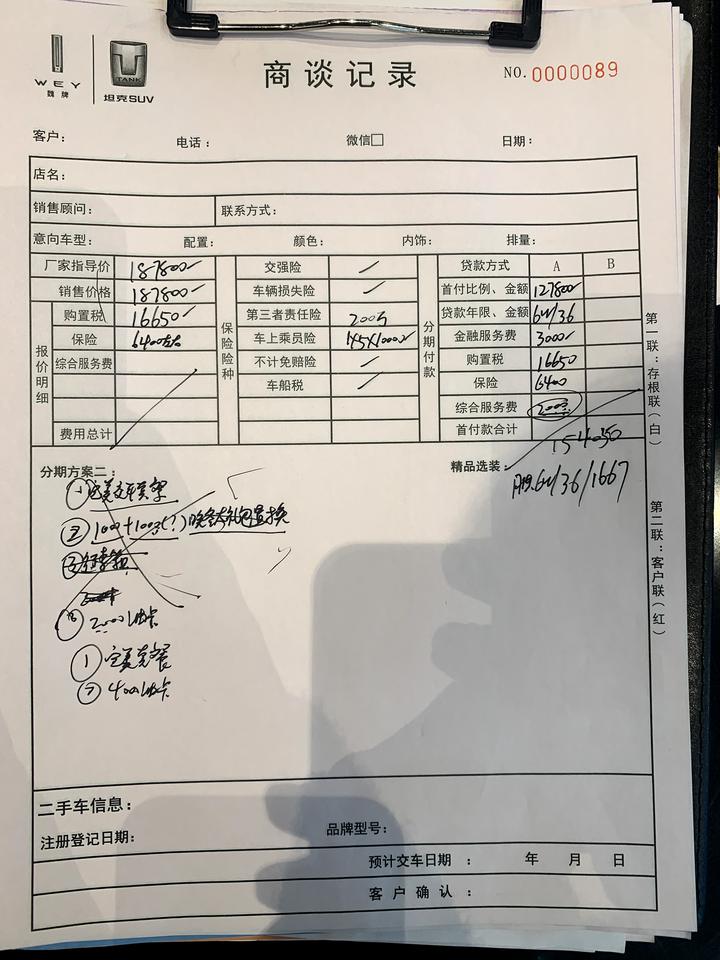 WEY
魏牌
TANK
坦克SUV
商谈记录
NO.0000089
客户： 电话： 微信□ 日期：
店名：
销售顾问： 联系方式：
意向车型： 配置： 颜色： 内饰： 排量：
厂家指导价 187800 交强险 贷款方式 A B
销售价格 187800 车辆损失险 首付比例、金额 127800
购置税 16650 第三者责任险 200万 贷款年限、金额 6W/36
保险 6400左右 车上乘员险 1×5×10000 金融服务费 3000
综合服务费 不计免赔险 购置税 16650
车船税 保险 6400
综合服务费 2000
费用总计 首付款合计 154050
报价明细
保险险种
分期付款
第一联：存根联（白）
第二联：客户联（红）
分期方案二： 精品选装：
月供6W/36/1667
①
② 1000+1000(?) 置换
③
2000油卡
① 完美套餐
② 400油卡
二手车信息：
注册登记日期： 品牌型号：
预计交车日期 ： 年 月 日
客户确认 ：